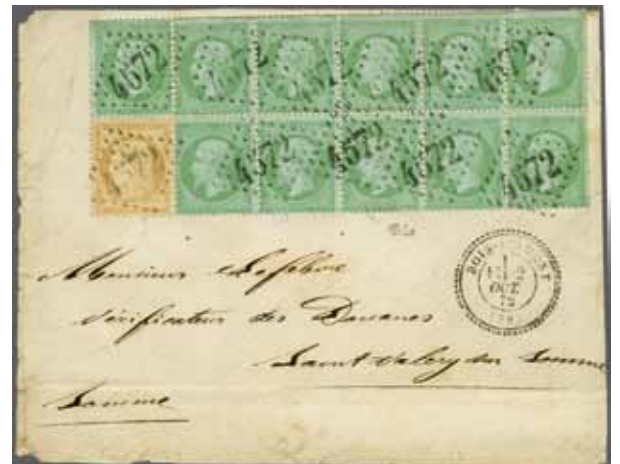 4572 4572 4572 4572 4572
4572 4572 4572 4572
Monsieur Lefebvre
Vérificateur des Douanes
Saint Valery sur Somme
Somme
OCT
72